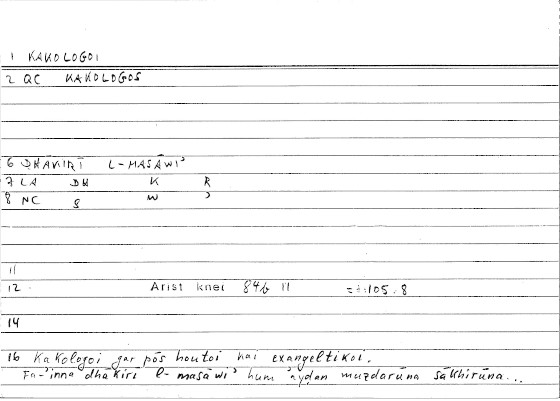 1 KAKOLOGOI
2 QC KAKOLOGOS
6 DHĀKIRĪ L-MASĀWIʾ
7 LA DH K R
8 NC S W ʾ
11
12 Arist rhet 84b 11 = 105.8
14
16 Kakologoi gar pōs houtoi kai exangeltikoi.
Fa-ʾinna dhākirī l-masāwiʾ hum ʾayḍan muzdarūna sākhirūna...